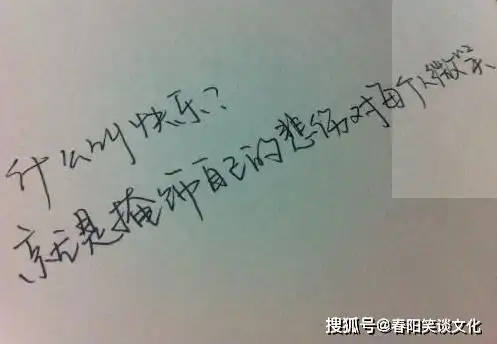 什么叫快乐?
就是掩饰自己的悲伤对每个人微笑
搜狐号@春阳笑谈文化